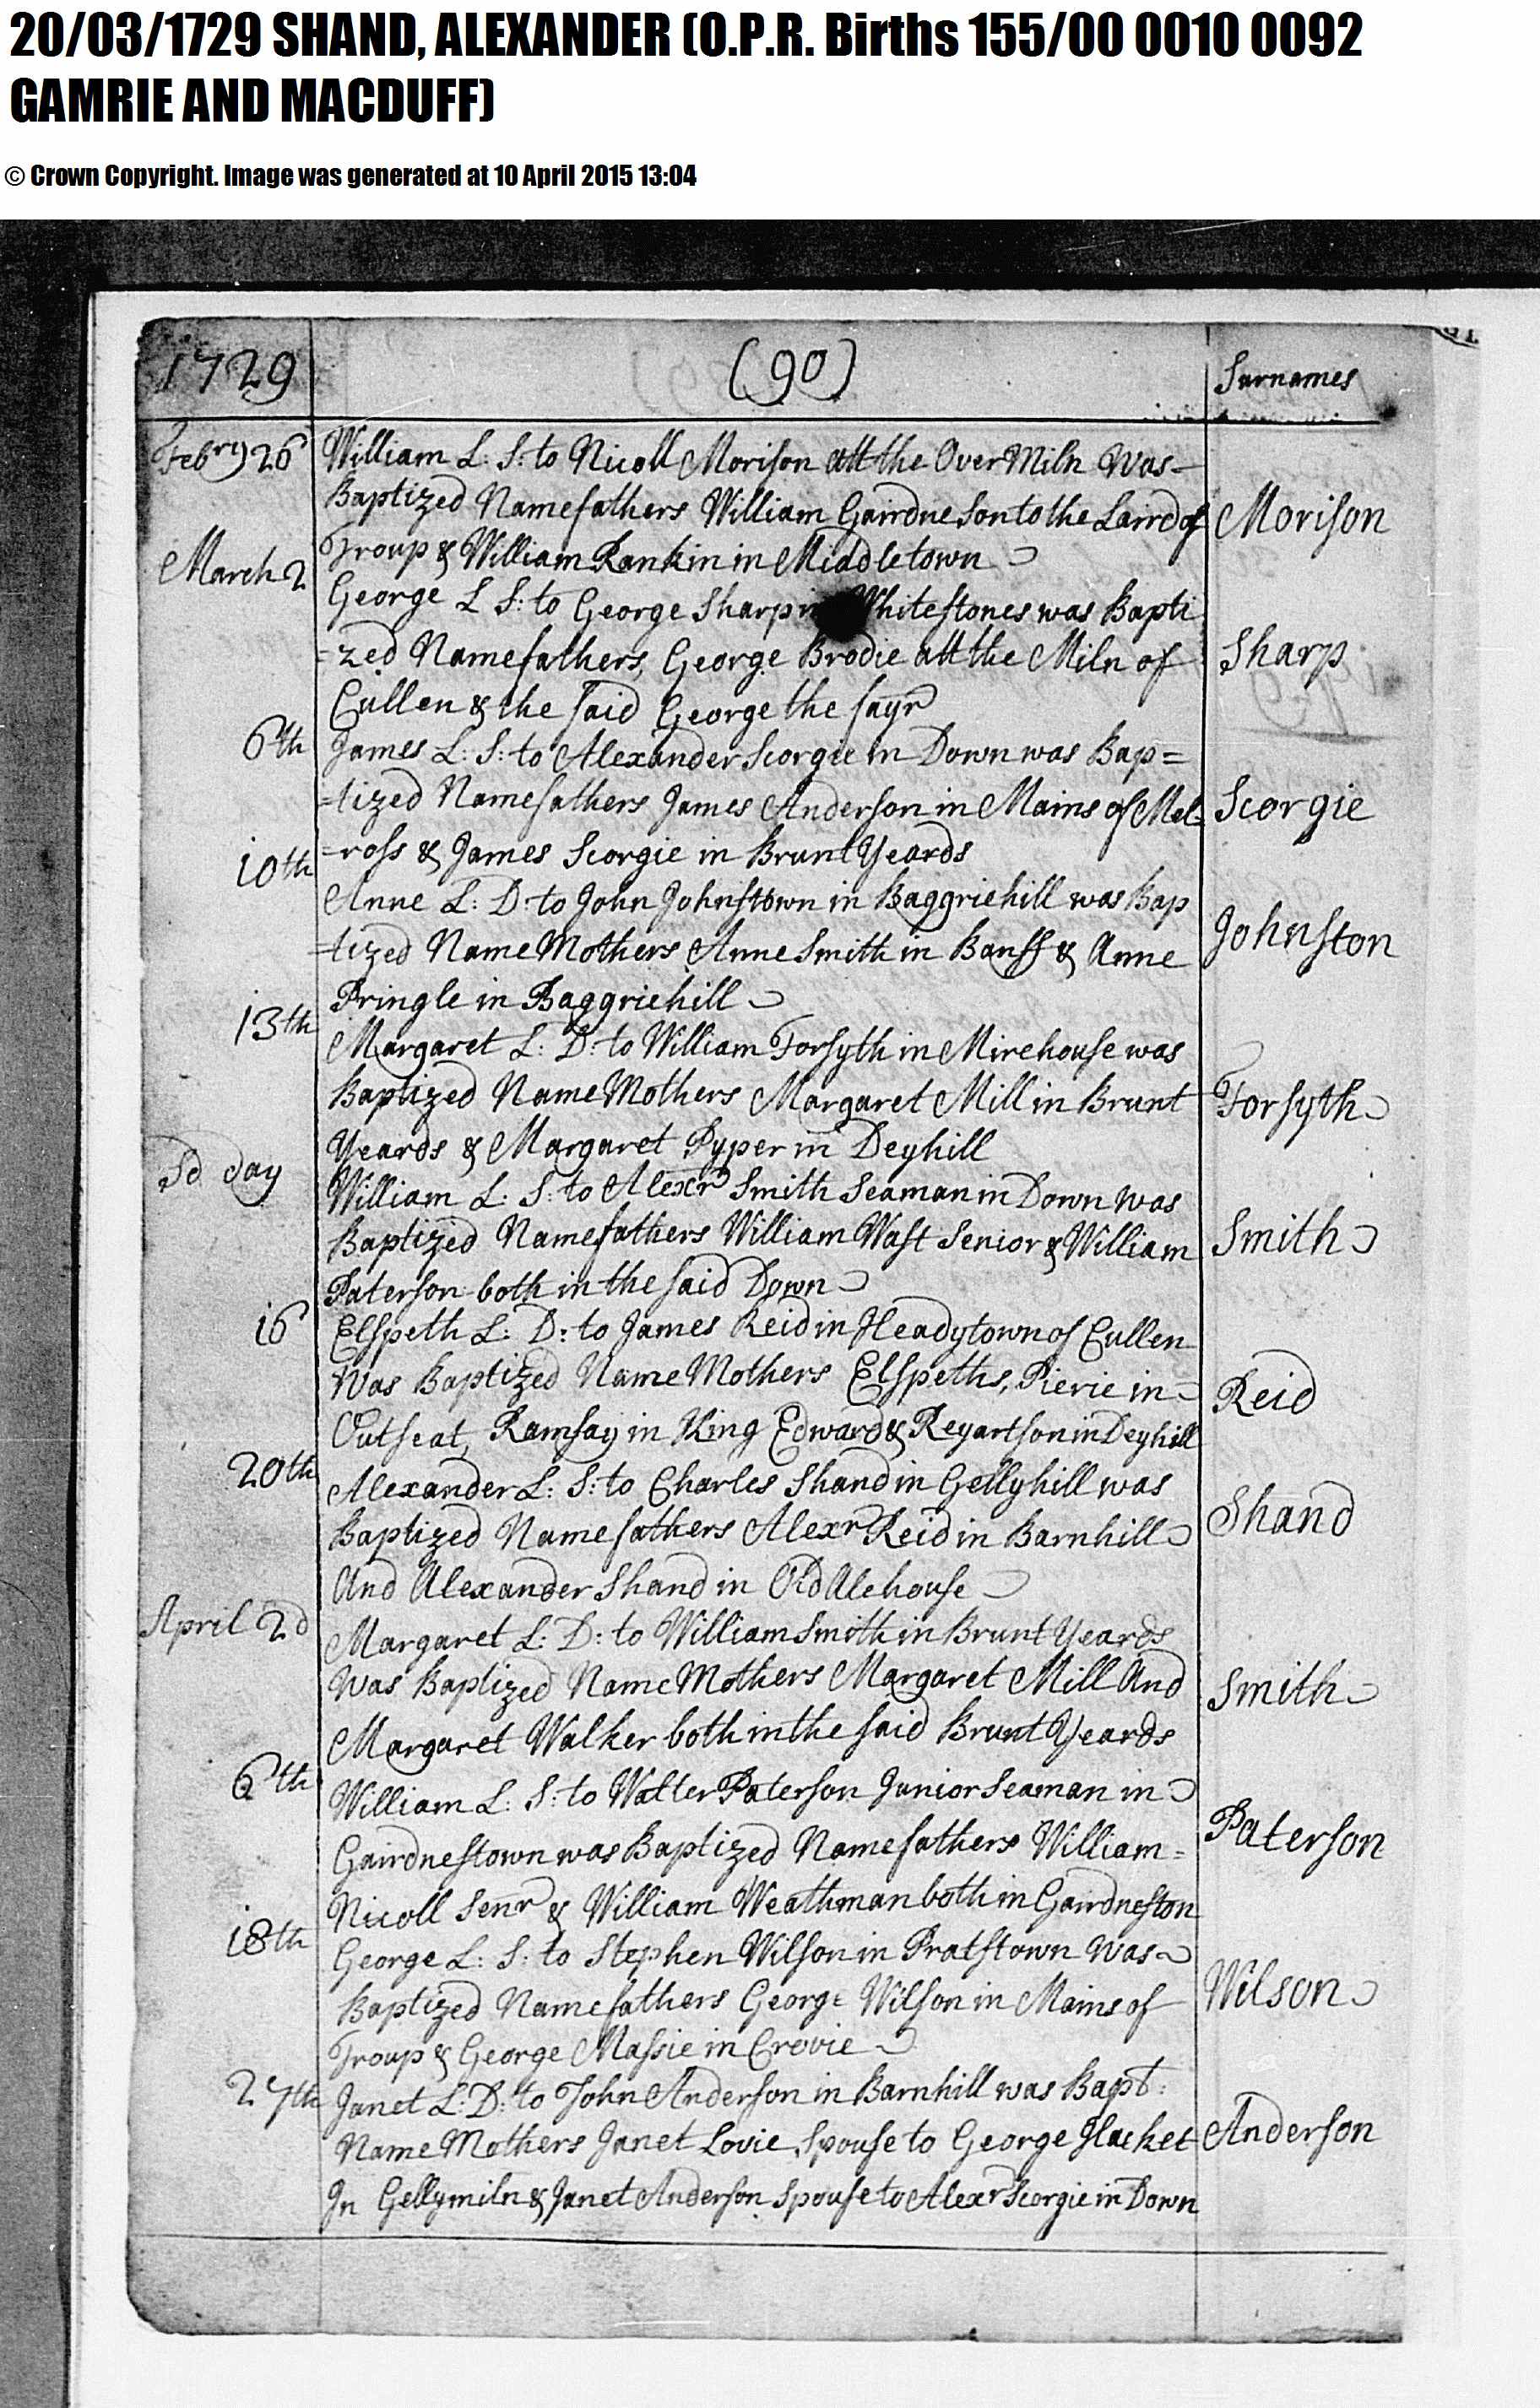 20/03/1729 SHAND, ALEXANDER (O.P.R. Births 155/00 0010 0092
GAMRIE AND MACDUFF)
© Crown Copyright. Image was generated at 10 April 2015 13:04
1729 (90) Surnames
Febry 26 William L: S: to Nicoll Morison att the Over Miln Was
Baptized Namefathers William Gairdne Son to the Laird of Morison
Troup & William Rankin in Middletown
March 2 George L S: to George Sharp in Whitestones was Bapti
=zed Namefathers, George Brodie att the Miln of Sharp
Cullen & the said George the sayr
6th James L: S: to Alexander Scorgie in Down was Bap=
=tized Namefathers James Anderson in Mains of Mel= Scorgie
=ross & James Scorgie in Brunt Yeards
10th Anne L: D: to John Johnstown in Baggriehill was Bap
=tized Name Mothers Anne Smith in Banff & Anne Johnston
Pringle in Baggriehill
13th Margaret L: D: to William Forsyth in Mirehouse was
Baptized Name Mothers Margaret Mill in Brunt Forsyth
Yeards & Margaret Pyper in Deyhill
Sd day William L: S: to Alexr Smith Seaman in Down was
Baptized Namefathers William Wast Senior & William Smith
Paterson both in the said Down
16 Elspeth L: D: to James Reid in Headytown of Cullen
Was Baptized Name Mothers Elspeths, Pierie in Reid
Outseat, Ramsay in King Edward & Reyartson in Deyhill
20th Alexander L: S: to Charles Shand in Gellyhill was
Baptized Namefathers Alexr Reid in Barnhill Shand
And Alexander Shand in Old Alehouse
April 2d Margaret L: D: to William Smith in Brunt Yeards
Was Baptized Name Mothers Margaret Mill And Smith
Margaret Walker both in the said Brunt Yeards
6th William L: S: to Walter Paterson Junior Seaman in
Gairdnestown was Baptized Namefathers William= Paterson
Nicoll Senr & William Weathman both in Gairdneston
18th George L: S: to Stephen Wilson in Pratstown Was
Baptized Namefathers George Wilson in Mains of Wilson
Troup & George Massie in Crovie
27th Janet L: D: to John Anderson in Barnhill was Bapt:
Name Mothers Janet Lovie Spouse to George Hacket Anderson
In Gellymiln & Janet Anderson Spouse to Alexr Scorgie in Down